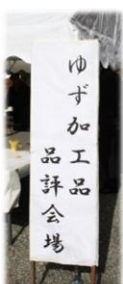 ゆず加工品
品評会場